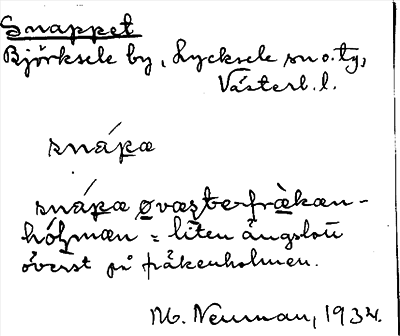 Snappet
Björksele by, Lycksele sn o. tg,
Västerb. l.
snápæ
snápæ øvæsterfràkæn-
hólmæn = liten ängslott
överst på fräkenholmen.
M. Neuman, 1934.